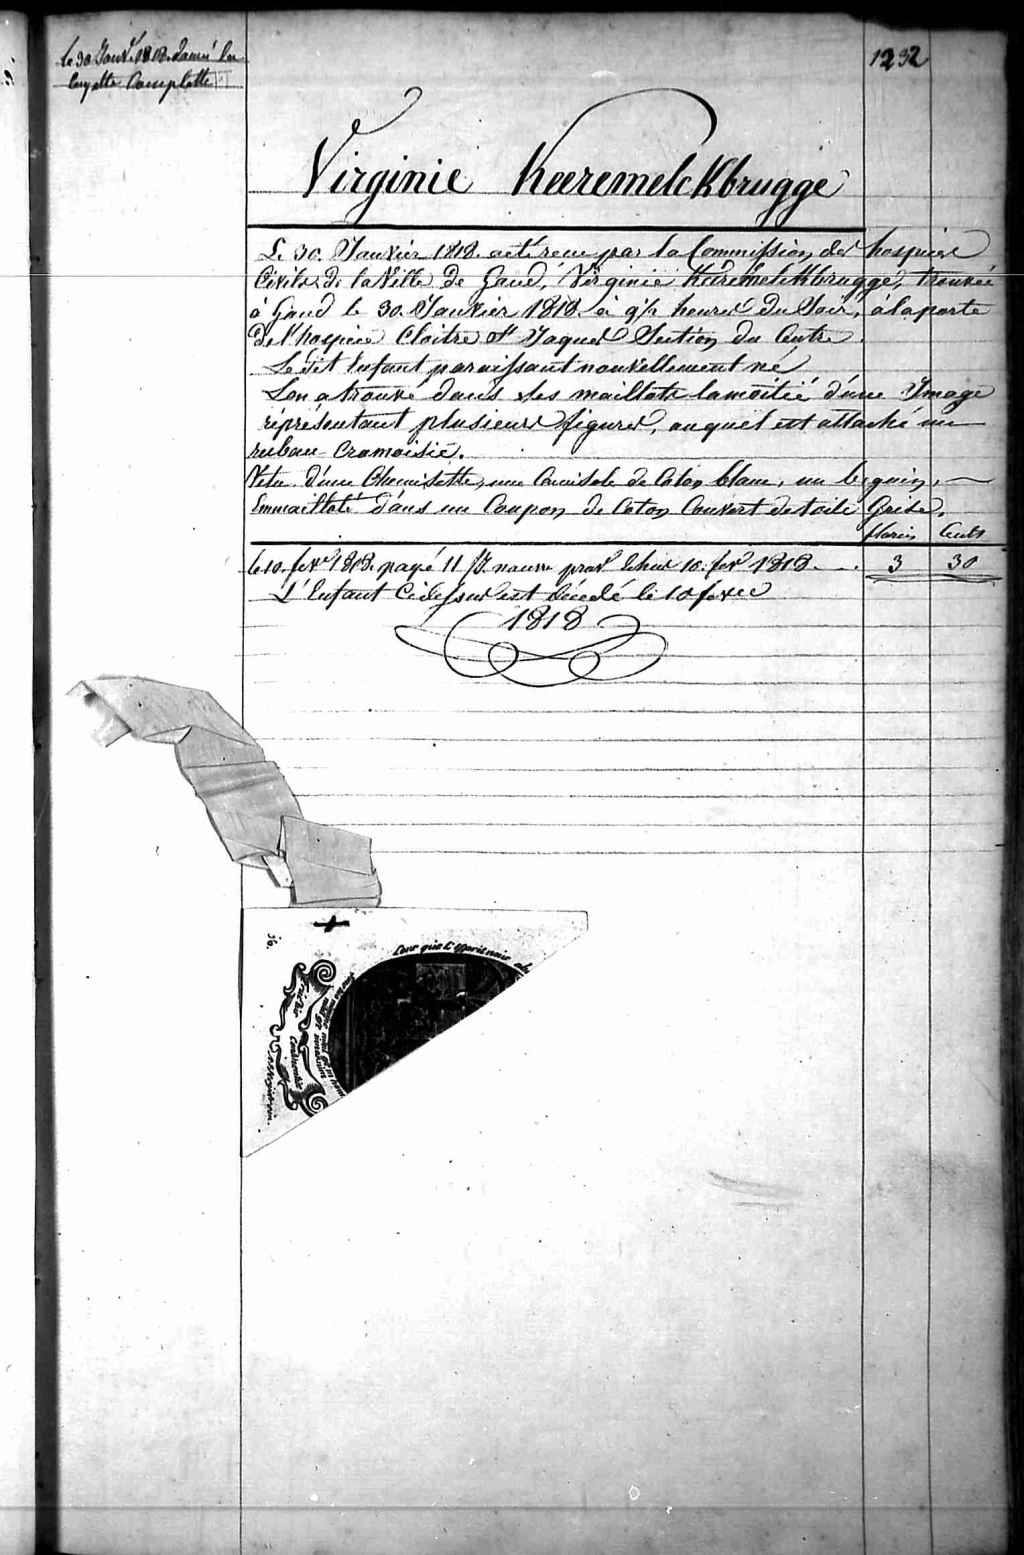 le 30 Janv. 1818. donné la
layette Complette
1232
Virginie Keeremelckbrugge
Le 30. Janvier 1818. a eté recue par la Commission des hospices
Civils de la Ville de Gand, Virginie Keeremelckbrugge, trouvée
à Gand le 30. Janvier 1818. à 9½ heures du Soir, à la porte
de l'hospice Cloitre St Jaques Section du Centre.
Le dit Enfant paraissant nouvellement né
L'on a trouvé dans ses maillots la moitié d'une Image
réprésentant plusieurs figures, auquel est attaché un
ruban Cramoisie.
Vetu d'une Chemisette, une Camisole de Coton blanc, un beguin,
Emmailloté dans un Coupon de Coton Couvert de toile Grise.
florins Cents
le 10. fevr 1818. payé 11 Js. nourre 10. fevr 1818. 3 30
L'Enfant Cidessus est décédé le 10 fevrier
1818
36.
Pour que l'Esprit